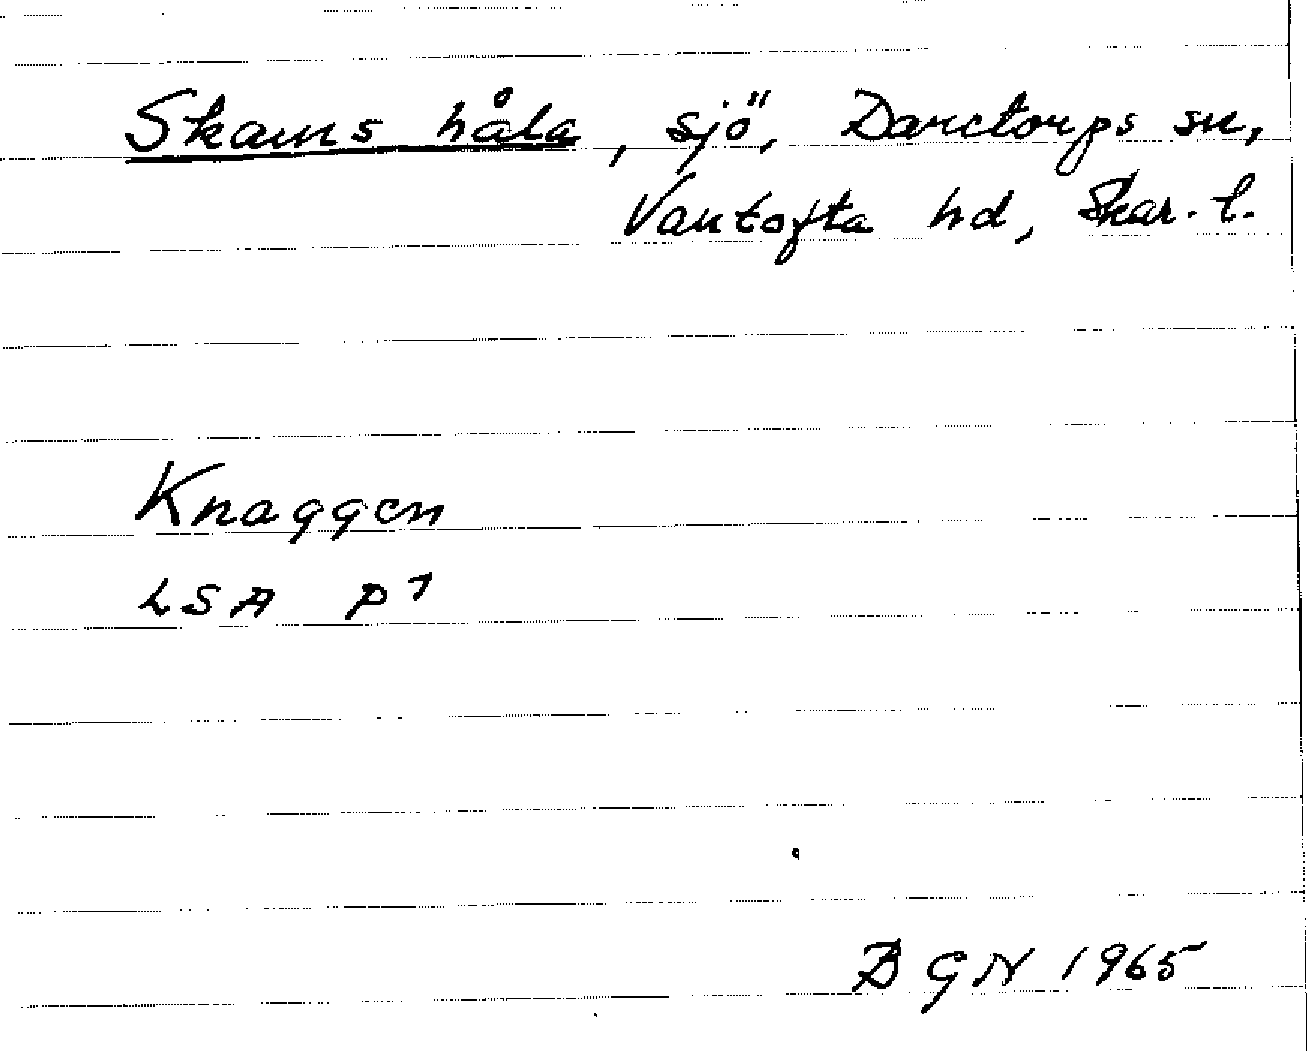 Skams håla, sjö, Daretorps sn,
Vartofta hd, Skar. l.
Knaggen
LSA P1
BGN 1965